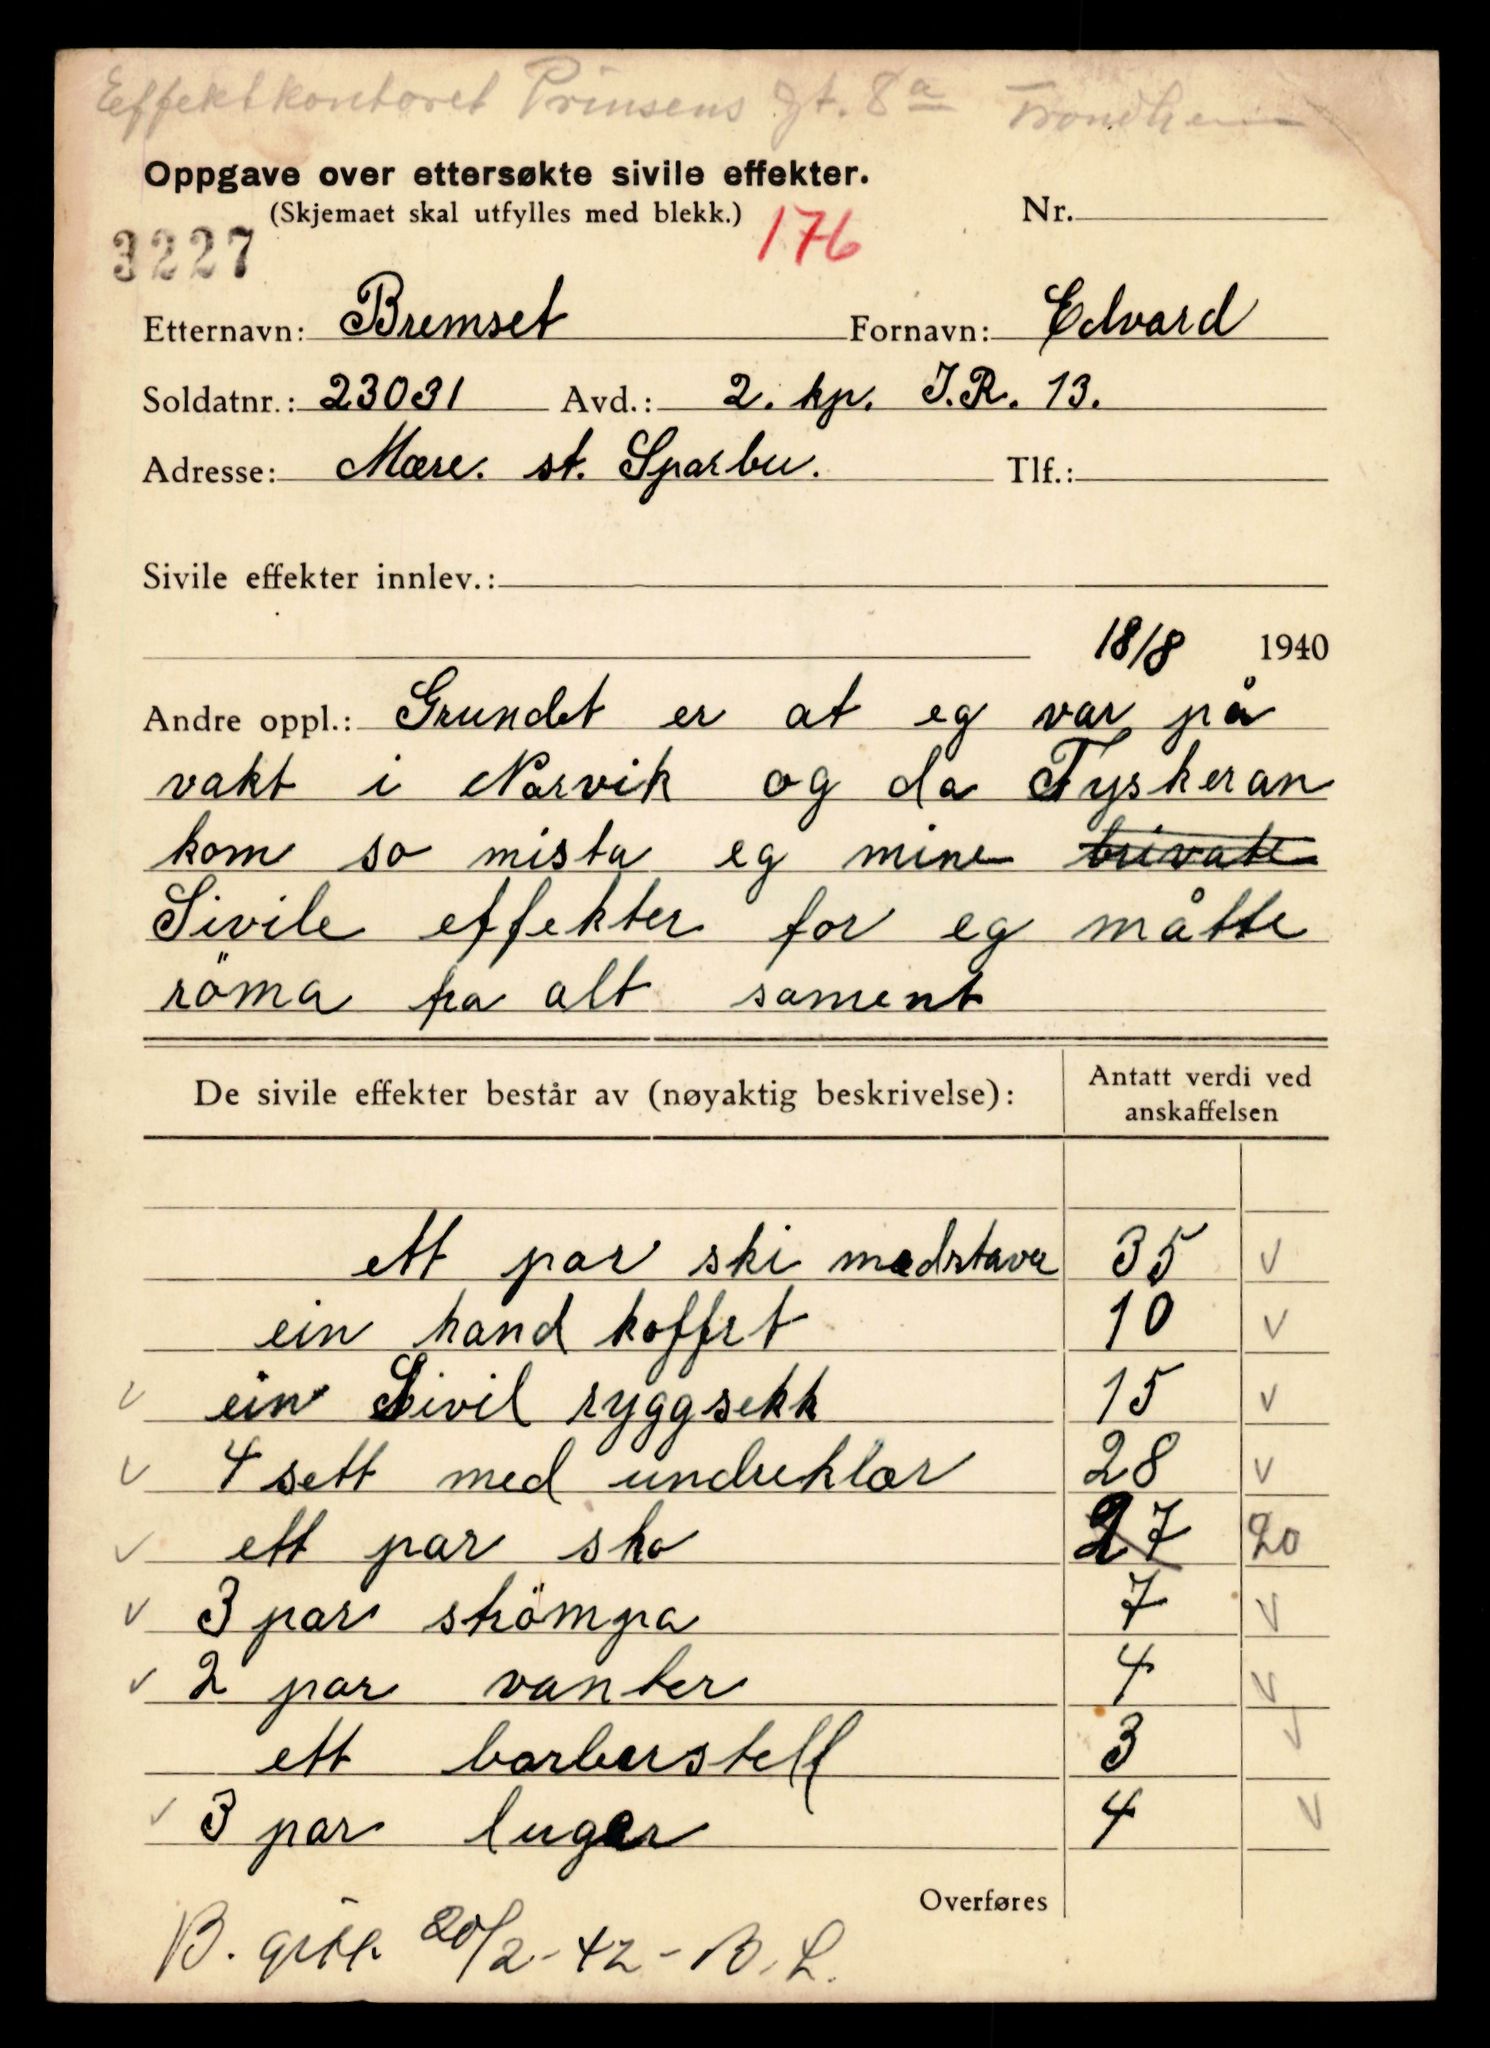 Effektkontoret Prinsens gt. 8a Trondheim
Oppgave over ettersøkte sivile effekter.
(Skjemaet skal utfylles med blekk.) 176 Nr.
3227
Etternavn: Bremset Fornavn: Edvard
Soldatnr.: 23031 Avd.: 2. kp. I.R. 13.
Adresse: Mære. st. Sparbu. Tlf.:
Sivile effekter innlev.:
18/8 1940
Andre oppl.: Grundet er at eg var på
vakt i Narvik og da Tyskeran
kom so mista eg mine brivate
Sivile effekter for eg måtte
röma fra alt sament
De sivile effekter består av (nøyaktig beskrivelse): Antatt verdi ved
anskaffelsen
ett par ski medstaver 35 v
ein hand koffert 10 v
v ein Sivil ryggsekk 15 v
v 4 sett med undreklær 28 v
v ett par sko 27 20
v 3 par strömpa 7 v
v 2 par vanter 4 v
ett barberstell 3 v
v 3 par luger 4 v
Overføres
B. 20/2-42 - B. L.